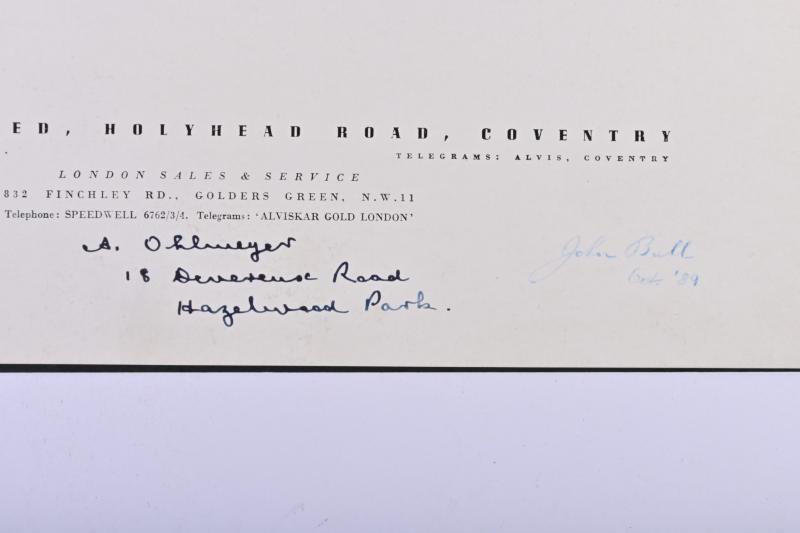 ED, HOLYHEAD ROAD, COVENTRY
TELEGRAMS: ALVIS, COVENTRY
LONDON SALES & SERVICE
832 FINCHLEY RD., GOLDERS GREEN, N.W.11
Telephone: SPEEDWELL 6762/3/4. Telegrams: 'ALVISKAR GOLD LONDON'
A. Ohlmeyer
18 Devereux Road
Hazelwood Park.
John Bull
Oct '89